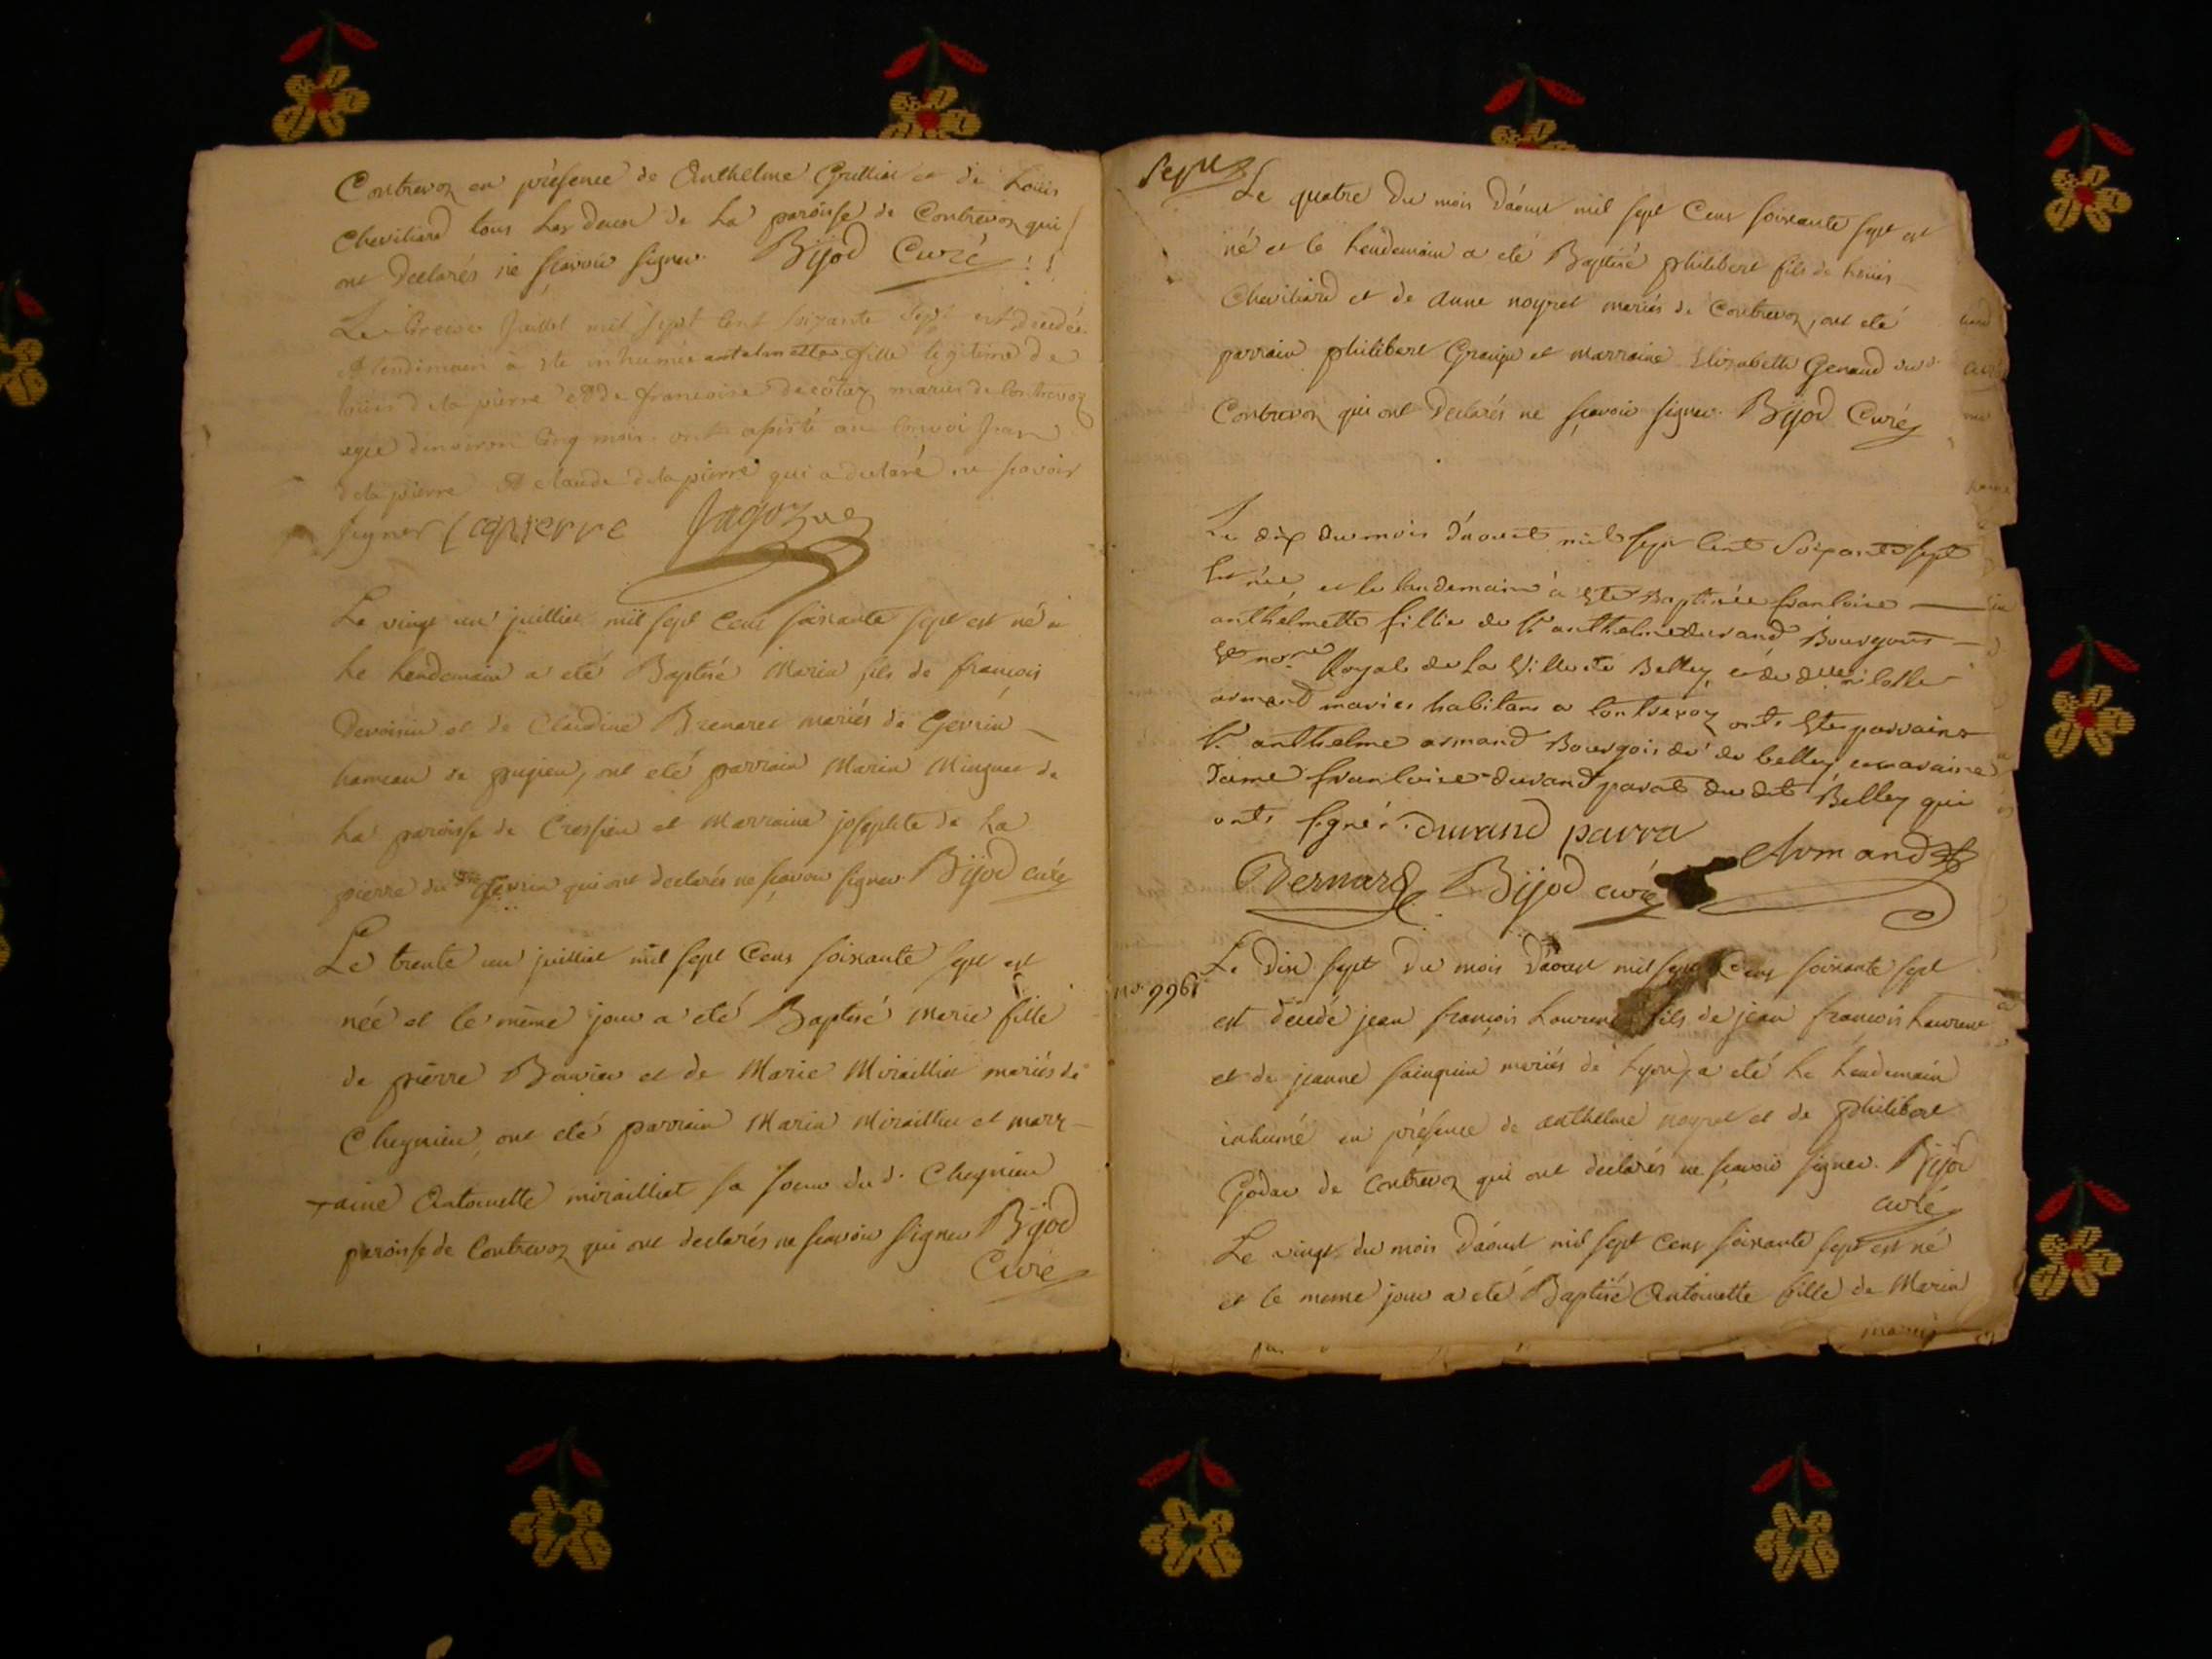 Contrevoz en présence de Anthelme Grillier et de Louis
Cheviliard tous Les deux de La paroisse de Contrevoz qui
ont Déclarés ne sçavoir signer. Bijod Curé
Le treize Juillet mil sept Cent soixante Sept est décédée
et lendemain à ete inhumée antelmette fille legitime de
louis de la pierre et de francoise decôtaz mariés de Contrevoz
agée denviron Cinq mois ont assisté au Convoi Jean
dela pierre et claude dela pierre qui a declaré ne scavoir
signer Lapierre
Le vingt un juilliet mil sept Cent soixante sept est né et
Le Lendemain a eté Baptisé Marin fils de françois
Devoisin et de Claudine Brenaret mariés de Gevrin
hameau de pugieu, ont eté parrain Marin Minguet de
La paroisse de Cressieu et Marraine josephte de La
pierre du Gevrin qui ont declarés ne sçavoir signer Bijod curé
Le trente un juilliet mil sept Cens soixante sept est
née et le même jour a eté Baptisé Marie fille
de pierre Bouvier et de Marie Mirailliet mariés de
Cheynieu, ont eté parrain Marin Mirailliet et marr
raine Antoinette mirailliet sa soeur du d. Cheynieu
paroisse de Contrevoz qui ont declarés ne scavoir signer Bijod
Curé
Le quatre Du mois D'aoust mil sept Cens soixante sept est
né et le Lendemain a eté Baptisé philibert fils de Louis
Cheviliard et de Anne noyret mariés de Contrevoz, ont eté
parrain philibert Grange et marraine Elizabeth Genaud du d.
Contrevoz qui ont Declarés ne sçavoir signer. Bijod Curé
Le dix du mois d'aoust mil sept Cent Soixante sept
Est née, et le landemain à Eté Baptisée francoise
anthelmette fillie du Sr. anthelme durand Bourgois
Royal de La Ville de Belley, et de dlle
armand mariés habitans a Contrevoz onts Eté parrains
Sr. anthelme armand Bourgois de belley et maraine
Dame francoise durand parat du dit Belley qui
onts signés. durand parra
Armand
Bernard Bijod curé
no. 996
Le Dix sept Du mois D'aoust mil sept Cens soixante sept
est decedé jean françois Laurent fils de jean françois Laurent
et de jeanne mariés de Lyon, a eté Le Lendemain
inhumé en présence de anthelme noyret et de philibert
Godet de Contrevoz qui ont declarés ne scavoir signer. Bijod
curé
Le vingt du mois D'aoust mil sept Cens soixante sept est né
et le meme jour a eté Baptisé Antoinette fille de Marin